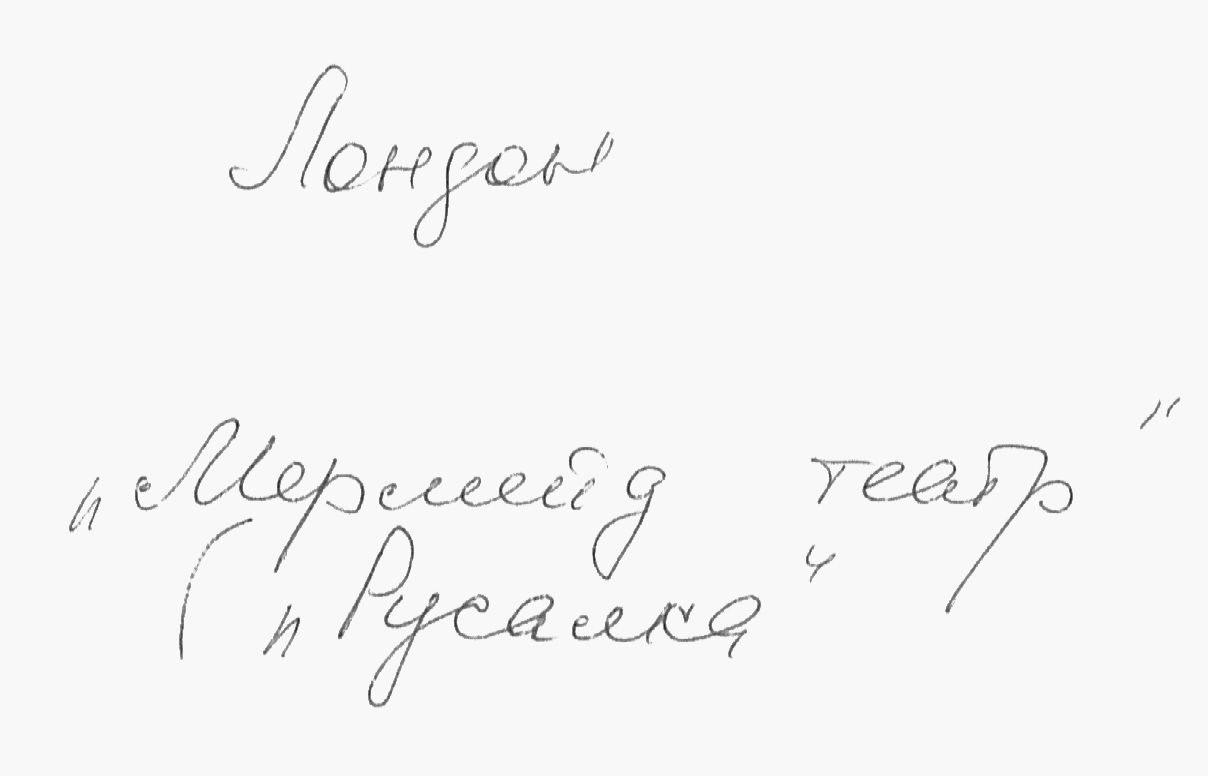 Лондон
„Мермейд театр"
(„Русалка"